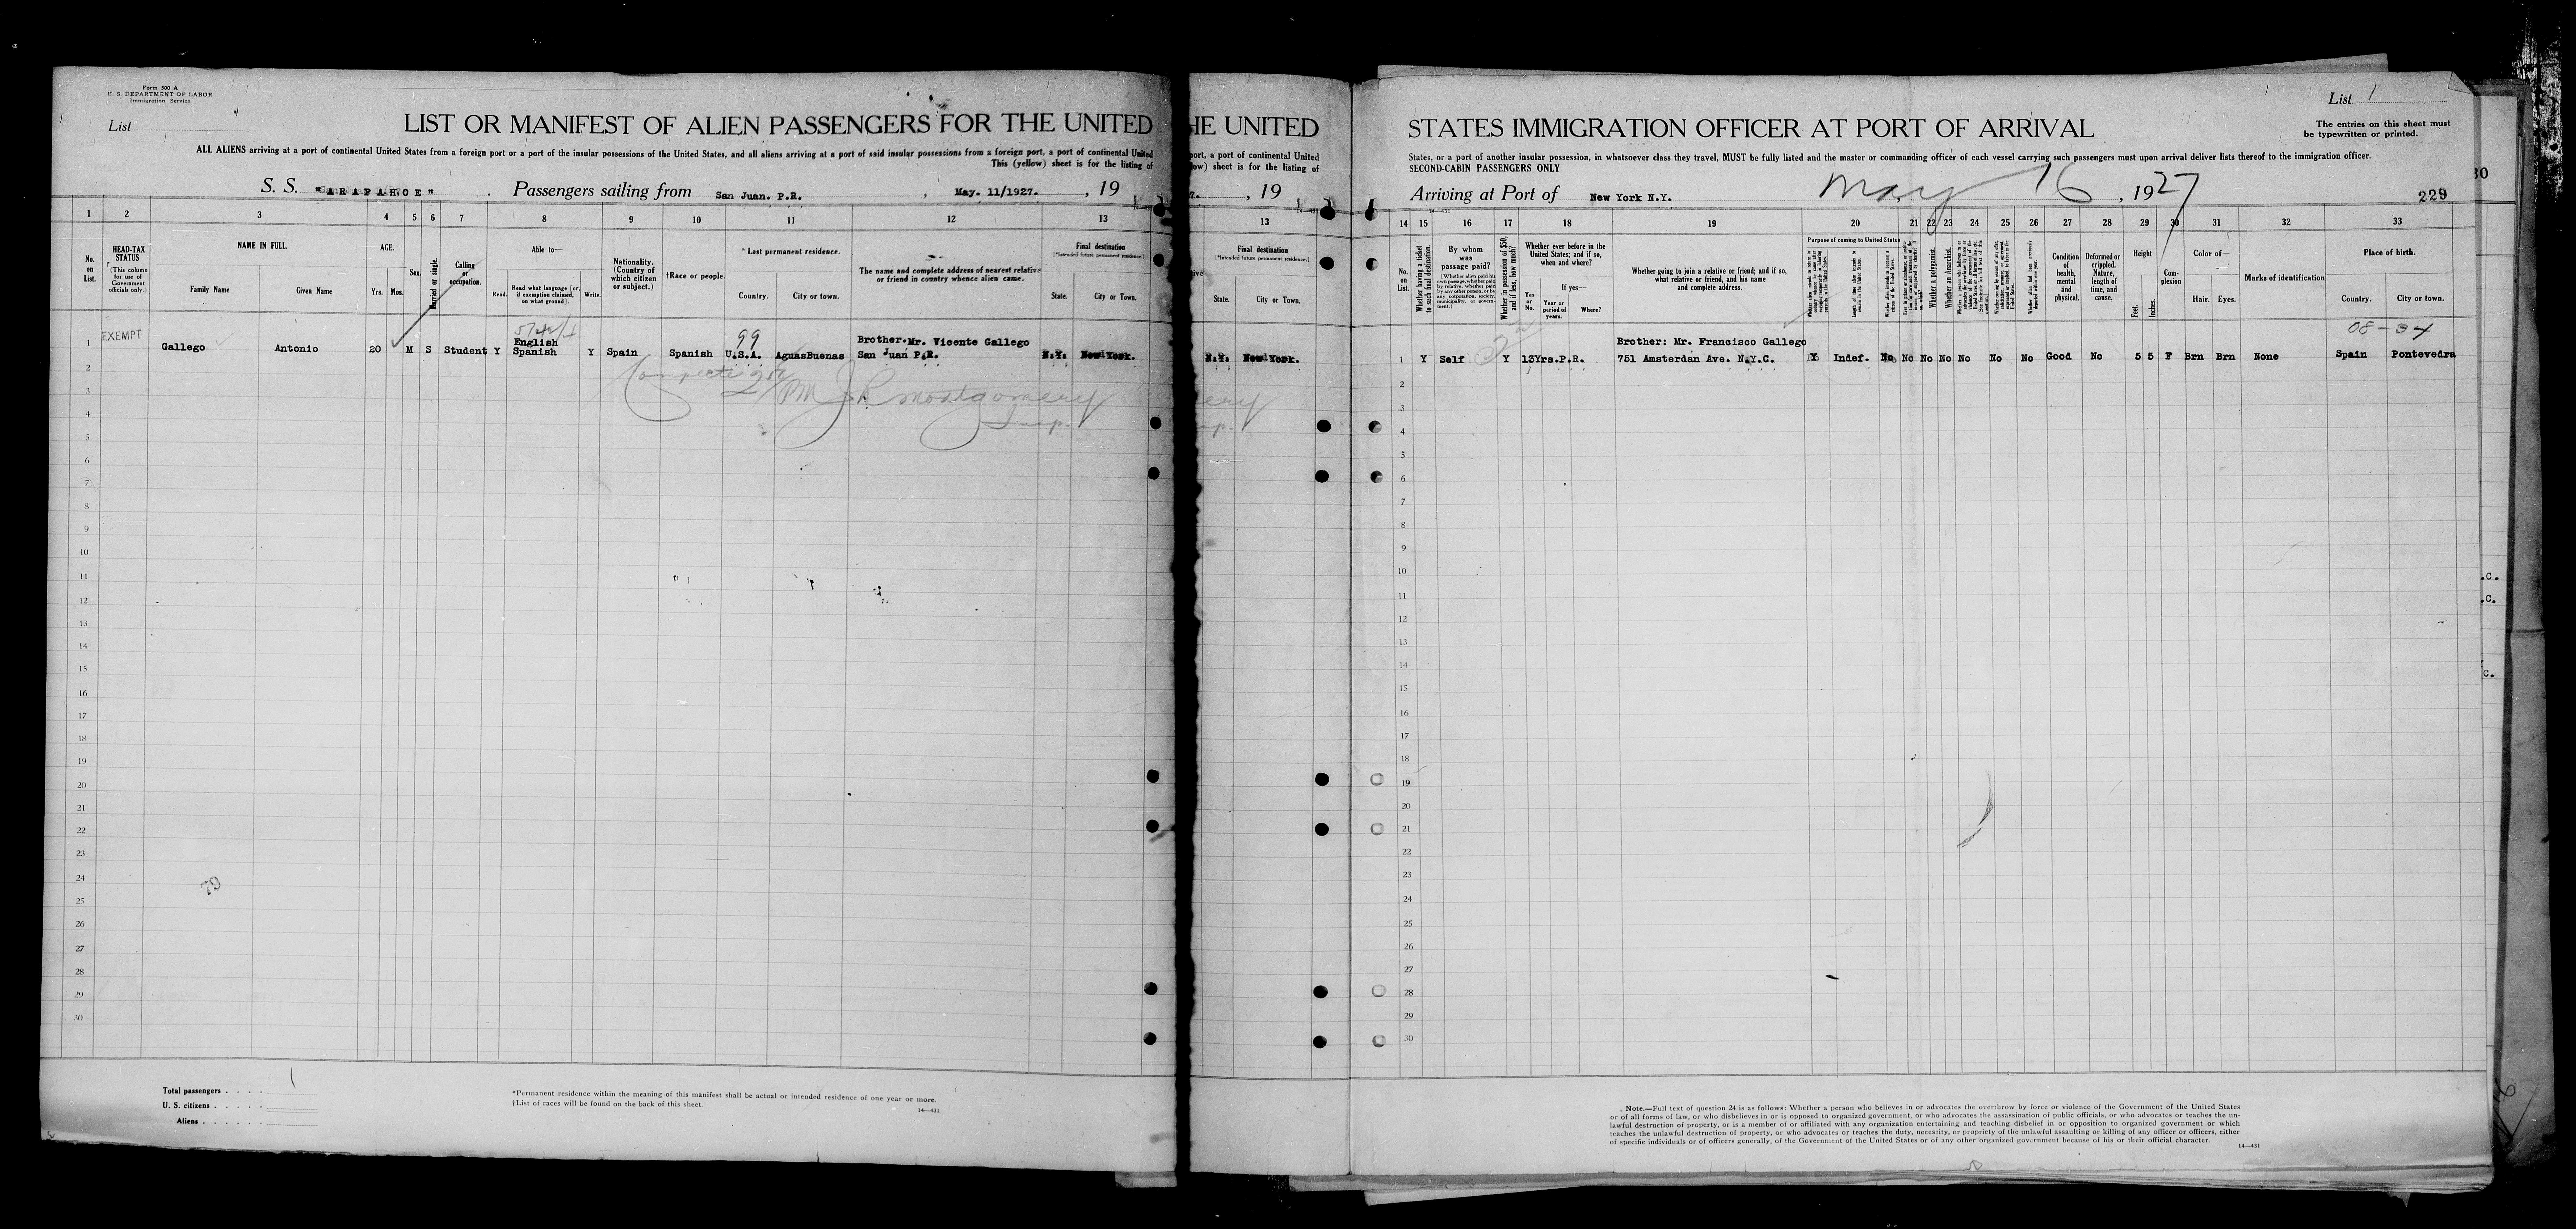 Form 500 A
U. S. DEPARTMENT OF LABOR
Immigration Service
List
LIST OR MANIFEST OF ALIEN PASSENGERS FOR THE UNITED
ALL ALIENS arriving at a port of continental United States from a foreign port or a port of the insular possessions of the United States, and all aliens arriving at a port of said insular possessions from a foreign port, a port of continental United
This (yellow) sheet is for the listing of
S. S. "ARAPAHOE" . Passengers sailing from San Juan. P.R. , May. 11/1927. , 19
1 2 3 4 5 6 7 8 9 10 11 12 13
No. on List.
HEAD-TAX STATUS (This column for use of Government officials only.)
NAME IN FULL. Family Name Given Name
AGE. Yrs. Mos.
Sex.
Married or single.
Calling or occupation.
Able to— Read. Read what language [or, if exemption claimed, on what ground]. Write.
Nationality. (Country of which citizen or subject.)
†Race or people.
*Last permanent residence. Country. City or town.
The name and complete address of nearest relative or friend in country whence alien came.
Final destination (*Intended future permanent residence.) State. City or Town.
EXEMPT
99
English Brother.Mr. Vicente Gallego
1 Gallego Antonio 20 M S Student Y Spanish Y Spain Spanish U.S.A. AguasBuenas San Juan P.R. N.Y. New York.
J R Montgomery
Insp.
2
3
4
5
6
7
8
9
10
11
12
13
14
15
16
17
18
19
20
21
22
23
24
25
26
27
28
29
30
79
Total passengers . . . . 1
U. S. citizens . . . . .
Aliens . . . . . .
*Permanent residence within the meaning of this manifest shall be actual or intended residence of one year or more.
†List of races will be found on the back of this sheet.
14—431
HE UNITED
port, a port of continental United
low) sheet is for the listing of
7. , 19
13
Final destination
(*Intended future permanent residence.)
State. City or Town.
N.Y. New York.
ery
List 1
STATES IMMIGRATION OFFICER AT PORT OF ARRIVAL
The entries on this sheet must
be typewritten or printed.
States, or a port of another insular possession, in whatsoever class they travel, MUST be fully listed and the master or commanding officer of each vessel carrying such passengers must upon arrival deliver lists thereof to the immigration officer.
SECOND-CABIN PASSENGERS ONLY
Arriving at Port of New York N.Y. May 16 , 1927
229
14 15 16 17 18 19 20 21 22 23 24 25 26 27 28 29 30 31 32 33
No. on List.
Whether having a ticket to such final destination.
By whom was passage paid?
Whether in possession of $50, and if less, how much?
Whether ever before in the United States; and if so, when and where? Yes or No. If yes— Year or period of years. Where?
Whether going to join a relative or friend; and if so, what relative or friend, and his name and complete address.
Purpose of coming to United States
Whether a polygamist.
Whether an Anarchist.
Condition of health, mental and physical.
Deformed or crippled. Nature, length of time, and cause.
Height Feet. Inches.
Complexion
Color of— Hair. Eyes.
Marks of identification
Place of birth. Country. City or town.
Brother: Mr. Francisco Gallego
1 Y Self Y 13Yrs.P.R. 751 Amsterdan Ave. N.Y.C. Y Indef. No No No No No No No Good No 5 5 F Brn Brn None Spain Pontevedra
2
3
4
5
6
7
8
9
10
11
12
13
14
15
16
17
18
19
20
21
22
23
24
25
26
27
28
29
30
Note.—Full text of question 24 is as follows: Whether a person who believes in or advocates the overthrow by force or violence of the Government of the United States
or of all forms of law, or who disbelieves in or is opposed to organized government, or who advocates the assassination of public officials, or who advocates or teaches the un-
lawful destruction of property, or is a member of or affiliated with any organization entertaining and teaching disbelief in or opposition to organized government or which
teaches the unlawful destruction of property, or who advocates or teaches the duty, necessity, or propriety of the unlawful assaulting or killing of any officer or officers, either
of specific individuals or of officers generally, of the Government of the United States or of any other organized government because of his or their official character.
14—431